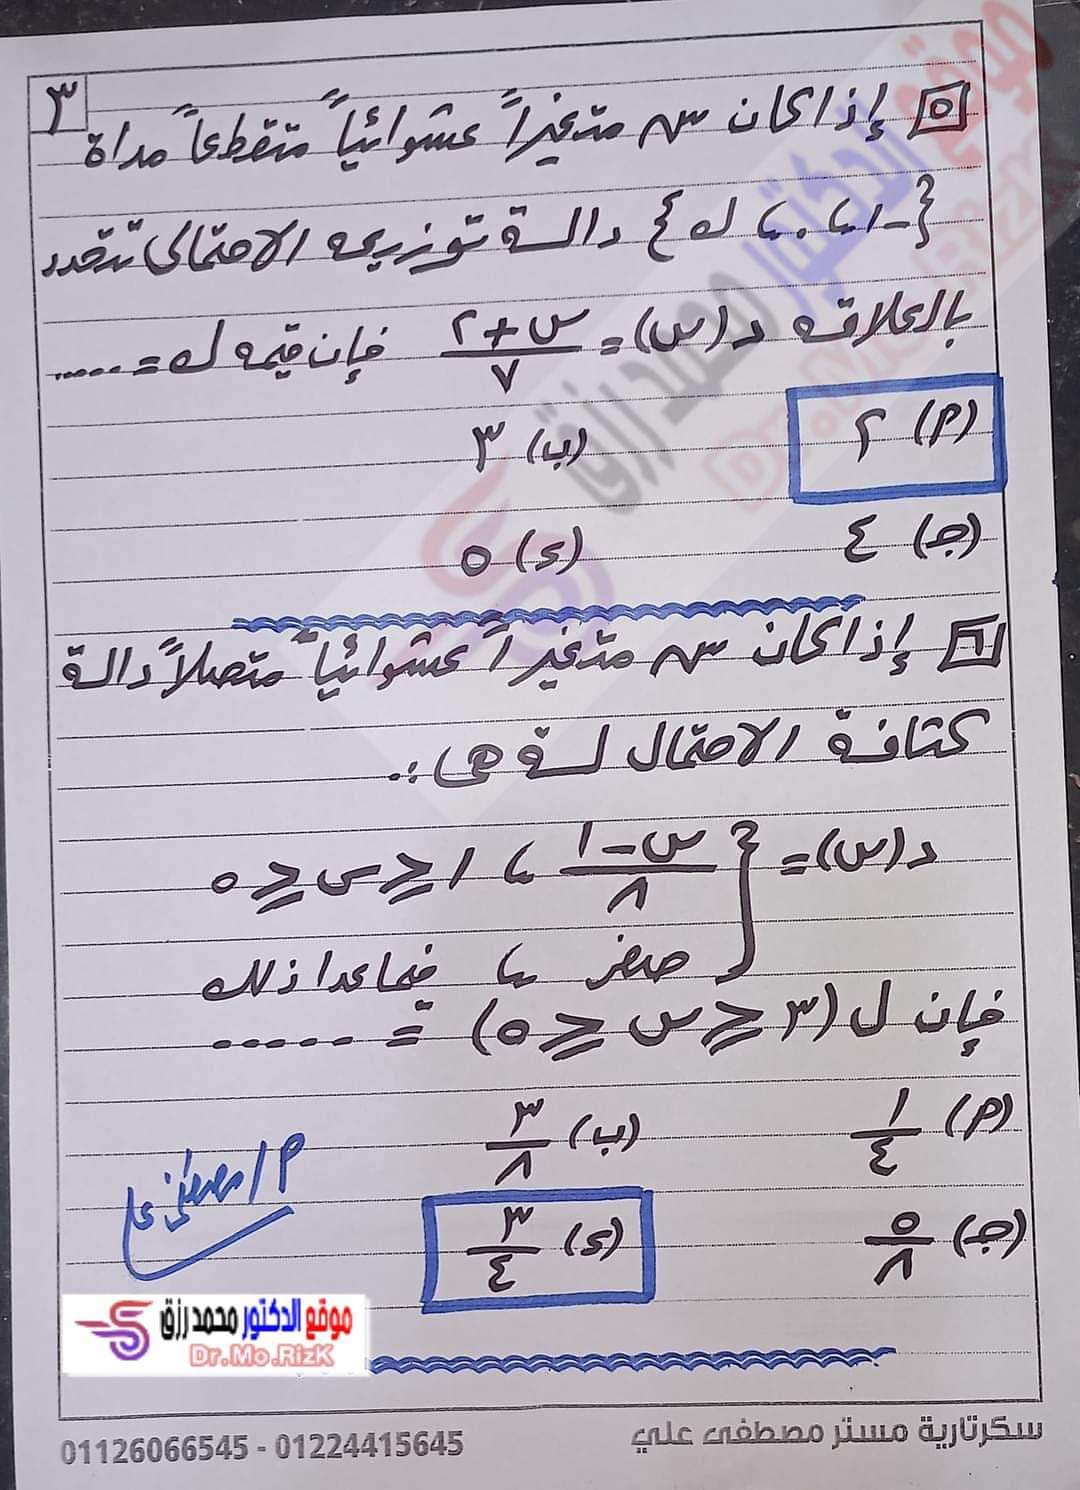 ٣
٥ إذا كان س متغيراً عشوائياً متقطعاً مداة
{-١، ٠، ك} دالة توزيعه الاحتمالى تتحدد
بالعلاقه د(س) = (س+٢)/٧ فإن قيمه ك = .....
(أ) ٢ (ب) ٣
(ج) ٤ (د) ٥
٦ إذا كان س متغيراً عشوائياً متصلاً دالة
كثافة الاحتمال لة هى :.
د(س) = { (س-١)/٨ ، ١ ≤ س ≤ ٥
صفر ، فيما عدا ذلك
فإن ل (٣ ≤ س ≤ ٥) = .....
(أ) ١/٤ (ب) ٣/٨
(ج) ٥/٨ (د) ٣/٤
م/مصطفى على
موقع الدكتور محمد رزق
Dr.Mo.RizK
سكرتارية مستر مصطفى علي
01126066545 - 01224415645
موقع الدكتور محمد رزق
Dr.Mo.RizK